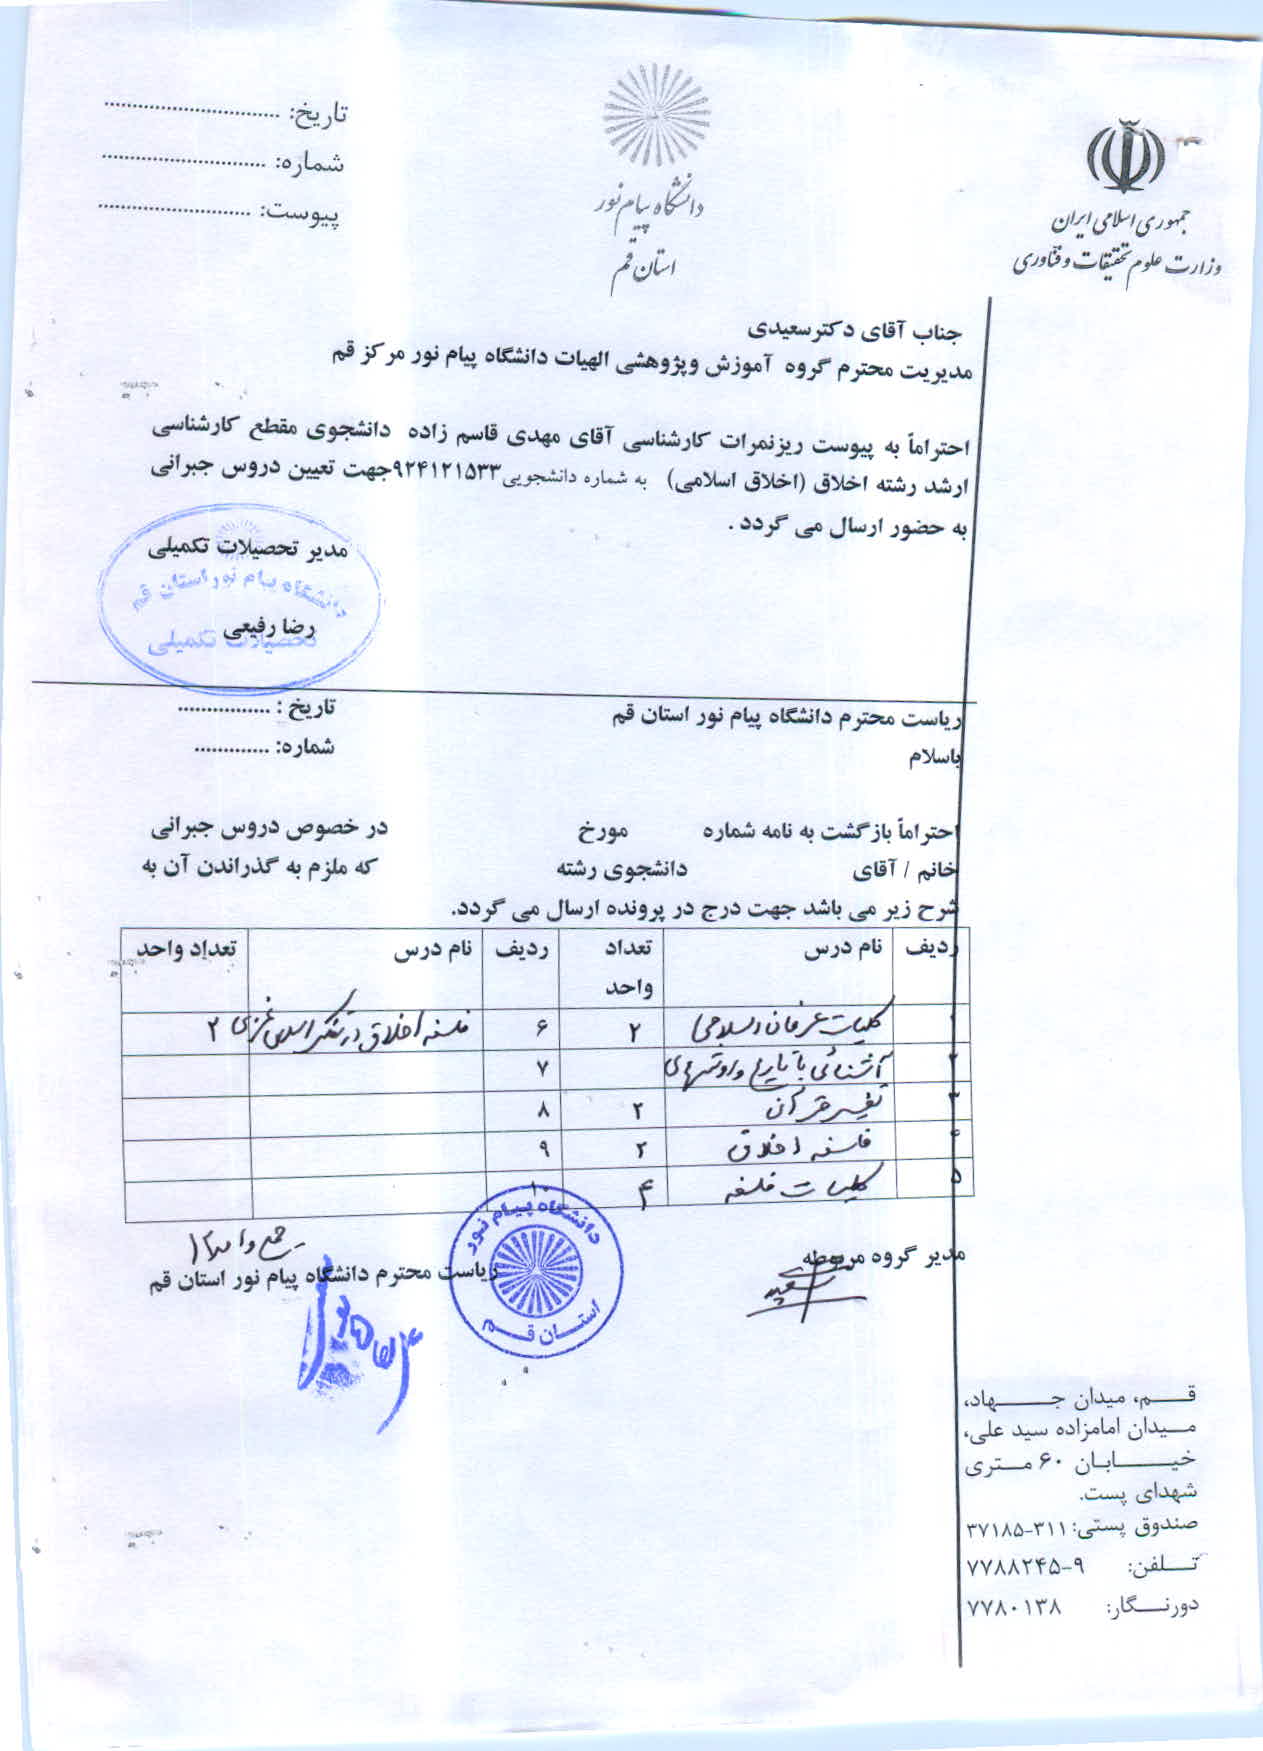 جمهوری اسلامی ایران
وزارت علوم تحقیقات و فنّاوری
دانشگاه پیام نور
استان قم
تاریخ: ..............................
شماره: ............................
پیوست: ..........................
جناب آقای دکترسعیدی
مدیریت محترم گروه آموزش وپژوهشی الهیات دانشگاه پیام نور مرکز قم
احتراماً به پیوست ریزنمرات کارشناسی آقای مهدی قاسم زاده دانشجوی مقطع کارشناسی
ارشد رشته اخلاق (اخلاق اسلامی) به شماره دانشجویی۹۲۴۱۲۱۵۳۳جهت تعیین دروس جبرانی
به حضور ارسال می گردد .
مدیر تحصیلات تکمیلی
دانشگاه پیام نور استان قم
رضا رفیعی
تحصیلات تکمیلی
ریاست محترم دانشگاه پیام نور استان قم
تاریخ : ................
باسلام
شماره: .............
احتراماً بازگشت به نامه شماره مورخ در خصوص دروس جبرانی
خانم / آقای دانشجوی رشته که ملزم به گذراندن آن به
شرح زیر می باشد جهت درج در پرونده ارسال می گردد.
ردیف نام درس تعداد واحد ردیف نام درس تعداد واحد
۱ کلیات عرفان اسلامی ۲ ۶ فلسفه اخلاق در تفکر اسلامی غربی ۲
۲ آشنائی با تاریخ و روشهای ۷
۳ تفسیر قرآن ۲ ۸
۴ فلسفه اخلاق ۲ ۹
۵ کلیات فلسفه ۴ ۱۰
جمع واحد
مدیر گروه مربوطه
ریاست محترم دانشگاه پیام نور استان قم
سعیدی
دانشگاه پیام نور
استان قم
قم، میدان جهاد،
میدان امامزاده سید علی،
خیابان ۶۰ متری
شهدای پست.
صندوق پستی: ۳۱۱-۳۷۱۸۵
تلفن: ۹-۷۷۸۸۲۴۵
دورنگار: ۷۷۸۰۱۳۸